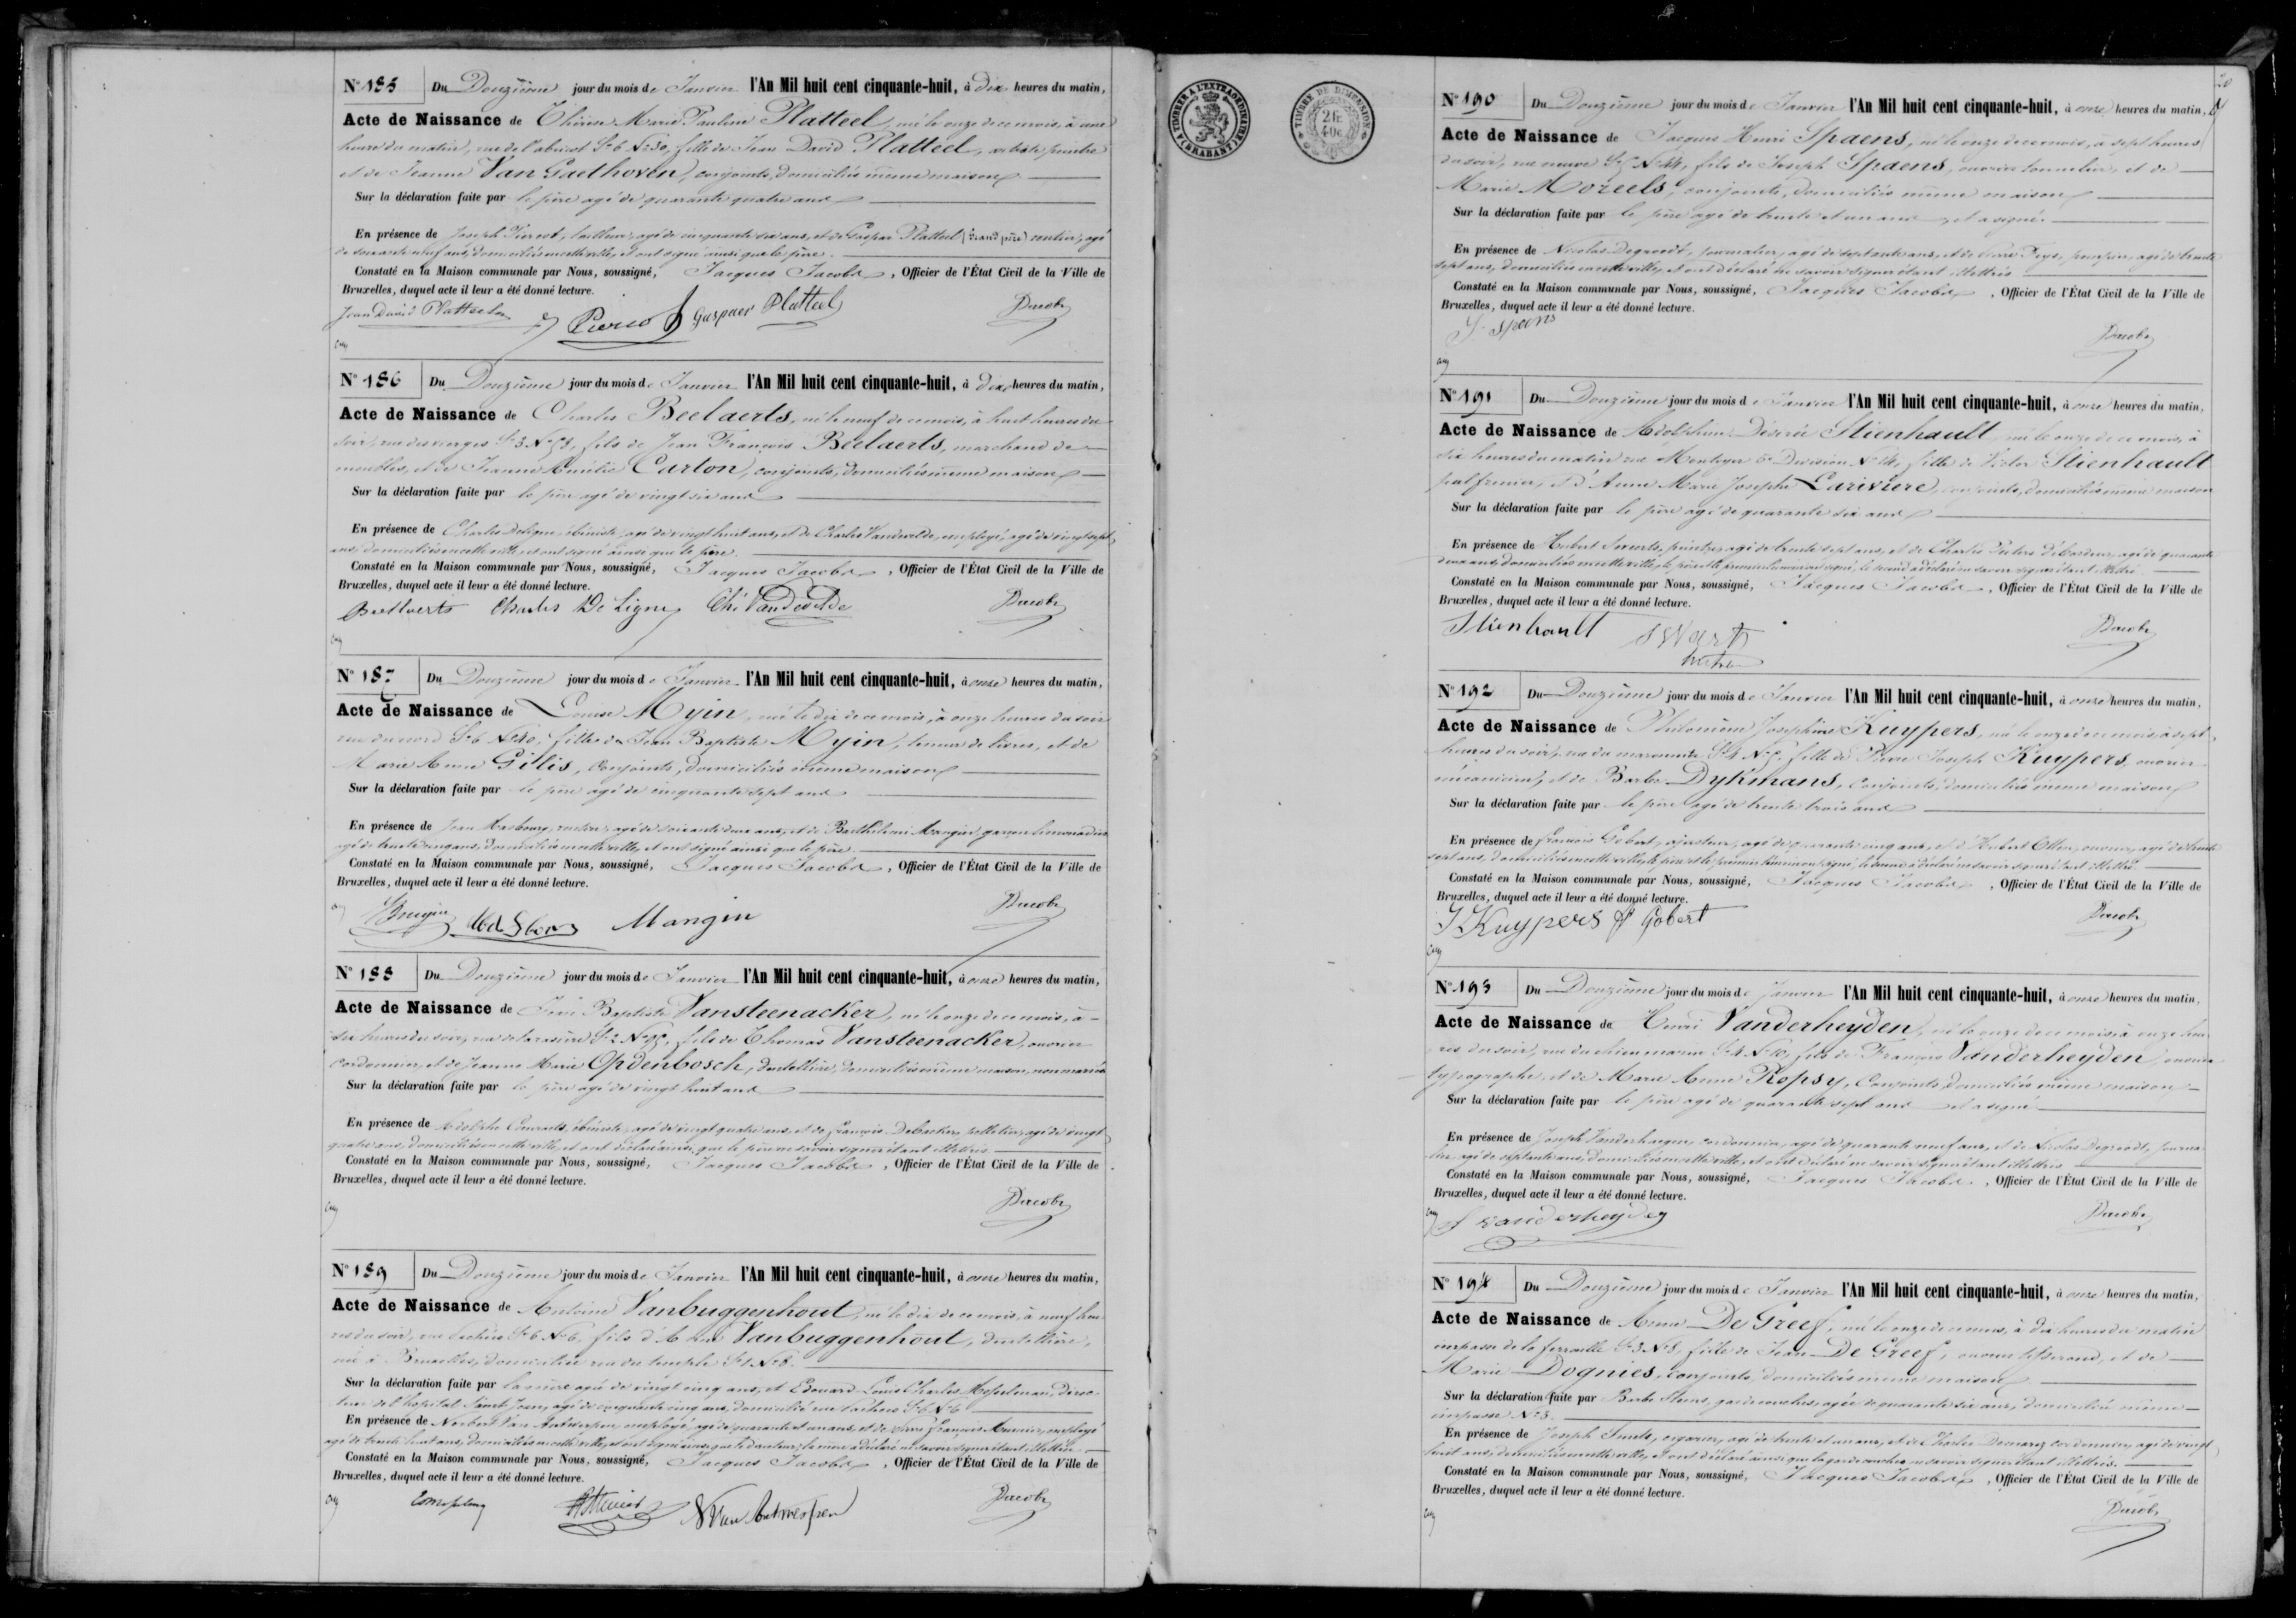 N° 185 Du Douzième jour du mois de Janvier l'An Mil huit cent cinquante-huit, à dix heures du matin,
Acte de Naissance de Thérèse Marie Pauline Platteel, né le onze de ce mois, à une
heure du matin, rue de l'abricot Sn 6 N° 30, fille de Jean David Platteel, artiste peintre
et de Jeanne Van Gaethoven, conjoints, domiciliés même maison
Sur la déclaration faite par le père agé de quarante quatre ans
En présence de Joseph Pierrot, tailleur, agé de cinquante six ans, et de Gaspar Platteel (Grand père) rentier, agé
de soixante neuf ans, domiciliés en cette ville, et ont signé ainsi que le père.
Constaté en la Maison communale par Nous, soussigné, Jacques Jacobs, Officier de l'État Civil de la Ville de
Bruxelles, duquel acte il leur a été donné lecture.
Jean David Platteel Gaspaer Platteel JJacobs
N° 186 Du Douzième jour du mois de Janvier l'An Mil huit cent cinquante-huit, à dix heures du matin,
Acte de Naissance de Charles Beelaerts, né le neuf de ce mois, à huit heures du
soir, rue des vierges Sn 3 N° fils de Jean François Beelaerts, marchand de
meubles, et de Jeanne Amélie Carton, conjoints, domiciliés même maison
Sur la déclaration faite par le père agé de vingt six ans
En présence de Charles Deligne, ébéniste, agé de vingt huit ans, et de Charles Vandevelde, employé, agé de vingt sept
ans, domiciliés en cette ville, et ont signé ainsi que le père.
Constaté en la Maison communale par Nous, soussigné, Jacques Jacobs, Officier de l'État Civil de la Ville de
Bruxelles, duquel acte il leur a été donné lecture.
Beelaerts Charles De Ligne Chs Vandevelde JJacobs
N° 187 Du Douzième jour du mois de Janvier l'An Mil huit cent cinquante-huit, à onze heures du matin,
Acte de Naissance de Louise Myin, né le dix de ce mois, à onze heures du soir
rue du nord Sn 6 N° 40, fille de Jean Baptiste Myin, teneur de livres, et de
Marie Anne Gillis, conjoints, domiciliés même maison
Sur la déclaration faite par le père agé de cinquante sept ans
En présence de Jean rentier, agé de soixante deux ans, et de Barthélemi Mangin, garçon limonadier
agé de trente cinq ans, domiciliés en cette ville, et ont signé ainsi que le père.
Constaté en la Maison communale par Nous, soussigné, Jacques Jacobs, Officier de l'État Civil de la Ville de
Bruxelles, duquel acte il leur a été donné lecture.
Mangin JJacobs
N° 188 Du Douzième jour du mois de Janvier l'An Mil huit cent cinquante-huit, à onze heures du matin,
Acte de Naissance de Baptiste Vansteenacker, né le onze de ce mois, à
six heures du soir, rue de la rasière Sn 2 fils de Thomas Vansteenacker, ouvrier
cordonnier, et de Jeanne Marie Opdenbosch, dentellière, domiciliés même maison, non mariés
Sur la déclaration faite par le père agé de vingt huit ans
En présence de Adolphe ébéniste, agé de vingt quatre ans, et de François Debacker, agé de vingt
quatre ans, domiciliés en cette ville, et ont déclaré ainsi que le père ne savoir signer étant illettrés
Constaté en la Maison communale par Nous, soussigné, Jacques Jacobs, Officier de l'État Civil de la Ville de
Bruxelles, duquel acte il leur a été donné lecture.
JJacobs
N° 189 Du Douzième jour du mois de Janvier l'An Mil huit cent cinquante-huit, à onze heures du matin,
Acte de Naissance de Antoine Vanbuggenhout, né le dix de ce mois, à neuf heu-
res du soir, rue Pachéco Sn 6 N° 6, fils d'Anne Vanbuggenhout, dentellière,
née à Bruxelles, domiciliée rue du temple Sn 1 N° 8.
Sur la déclaration faite par la mère agée de vingt cinq ans, et Edouard Louis Charles direc-
teur de l'hopital Saint Jean, agé de cinquante cinq ans, domicilié rue Pachéco Sn 6 N° 6
En présence de Norbert Van Antwerpen, employé, agé de quarante et un ans, et de Pierre François employé
agé de trente huit ans, domiciliés en cette ville, et ont signé ainsi que le directeur; la mère a déclaré ne savoir signer étant illettrée
Constaté en la Maison communale par Nous, soussigné, Jacques Jacobs, Officier de l'État Civil de la Ville de
Bruxelles, duquel acte il leur a été donné lecture.
N Van Antwerpen JJacobs
A TIMBRER A L'EXTRAORDINAIRE (BRABANT)
TIMBRE DE DIMENSION
2 fr. 40 c
N° 190 Du Douzième jour du mois de Janvier l'An Mil huit cent cinquante-huit, à onze heures du matin,
Acte de Naissance de Jacques Henri Spaens, né le onze de ce mois, à sept heures
du soir, rue neuve fils de Joseph Spaens, ouvrier tonnelier, et de
Marie Moreels, conjoints, domiciliés même maison
Sur la déclaration faite par le père agé de trente et un ans, et a signé.
En présence de Nicolas Degroodt, journalier, agé de septante ans, et de Pierre Feys, pompier, agé de trente
sept ans, domiciliés en cette ville, et ont déclaré ne savoir signer étant illettrés
Constaté en la Maison communale par Nous, soussigné, Jacques Jacobs, Officier de l'État Civil de la Ville de
Bruxelles, duquel acte il leur a été donné lecture.
J. Spaens
JJacobs
N° 191 Du Douzième jour du mois de Janvier l'An Mil huit cent cinquante-huit, à onze heures du matin,
Acte de Naissance de Adolphine Désirée Stienhault, né le onze de ce mois, à
six heures du matin rue Montoyer 5e Division N° 14, fille de Victor Stienhault
palfrenier, et d'Anne Marie Josephe Lariviere, conjoints, domiciliés même maison
Sur la déclaration faite par le père agé de quarante six ans
En présence de Hubert peintre, agé de trente sept ans, et de Charles Peeters débardeur, agé de quarante
deux ans, domiciliés en cette ville, le père et le premier témoin ont signé, le second a déclaré ne savoir signer étant illettré
Constaté en la Maison communale par Nous, soussigné, Jacques Jacobs, Officier de l'État Civil de la Ville de
Bruxelles, duquel acte il leur a été donné lecture.
Stienhault JJacobs
N° 192 Du Douzième jour du mois de Janvier l'An Mil huit cent cinquante-huit, à onze heures du matin,
Acte de Naissance de Philomène Josephine Kuypers, né le onze de ce mois, à sept
heures du soir, rue du Sn 4 fille de Pierre Joseph Kuypers, ouvrier
mécanicien, et de Barbe Dykmans, conjoints, domiciliés même maison
Sur la déclaration faite par le père agé de trente trois ans
En présence de François Gobert, ajusteur, agé de quarante cinq ans, et d'Hubert ouvrier, agé de trente
sept ans, domiciliés en cette ville, le père et le premier témoin ont signé, le second a déclaré ne savoir signer étant illettré
Constaté en la Maison communale par Nous, soussigné, Jacques Jacobs, Officier de l'État Civil de la Ville de
Bruxelles, duquel acte il leur a été donné lecture.
Kuypers Gobert JJacobs
N° 193 Du Douzième jour du mois de Janvier l'An Mil huit cent cinquante-huit, à onze heures du matin,
Acte de Naissance de Henri Vanderheyden, né le onze de ce mois, à onze heu-
res du soir, rue du chien marin Sn 4 N° 10, fils de François Vanderheyden, ouvrier
typographe, et de Marie Anne Ropsy, conjoints, domiciliés même maison
Sur la déclaration faite par le père agé de quarante sept ans et a signé
En présence de Joseph Vanderhaegen, cordonnier, agé de quarante neuf ans, et de Nicolas Degroodt, journa-
lier, agé de septante ans, domiciliés en cette ville, et ont déclaré ne savoir signer étant illettrés
Constaté en la Maison communale par Nous, soussigné, Jacques Jacobs, Officier de l'État Civil de la Ville de
Bruxelles, duquel acte il leur a été donné lecture.
f vanderheyden JJacobs
N° 194 Du Douzième jour du mois de Janvier l'An Mil huit cent cinquante-huit, à onze heures du matin,
Acte de Naissance de Anne De Greef, né le onze de ce mois, à dix heures du matin
impasse de la ferraille Sn 3 N° 8, fille de Jean De Greef, ouvrier tisserand, et de
Marie Dognies, conjoints, domiciliés même maison
Sur la déclaration faite par Barbe garde couches, agée de quarante six ans, domiciliée même
impasse N° 8.
En présence de Joseph Smets, cigarier, agé de trente et un ans, et de Charles Demarez cordonnier, agé de vingt
huit ans, domiciliés en cette ville, et ont déclaré ainsi que la garde couches ne savoir signer étant illettrés.
Constaté en la Maison communale par Nous, soussigné, Jacques Jacobs, Officier de l'État Civil de la Ville de
Bruxelles, duquel acte il leur a été donné lecture.
JJacobs